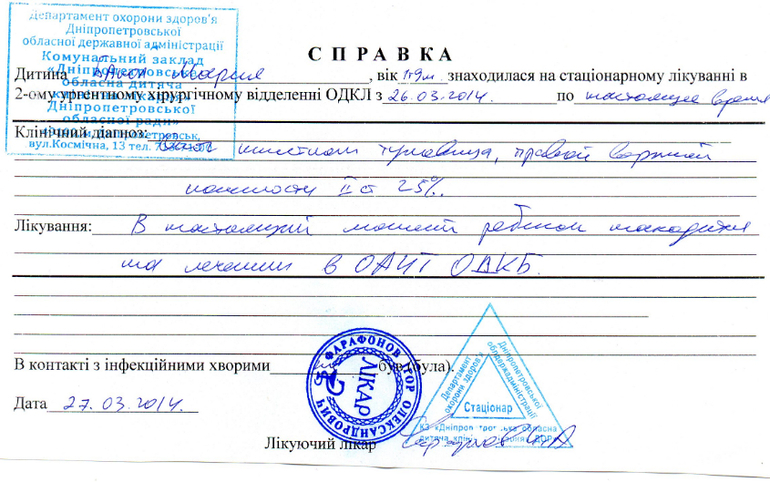 Департамент охорони здоров'я
Дніпропетровської
обласної державної адміністрації
Комунальний заклад
«Дніпропетровська
обласна дитяча
Дніпропетровської
обласної ради»
вул.Космічна, 13 тел.
СПРАВКА
Дитина Мария, вік 1г9м знаходилася на стаціонарному лікуванні в
2-ому ургентному хірургічному відділенні ОДКЛ з 26.03.2014. по настоящее время
Клінічний діагноз: Ожог кипятком туловища, правой верхней
конечности II ст 25%.
Лікування: В настоящий момент ребенок находится
на лечении в ОАИТ ОДКБ.
В контакті з інфекційними хворими був (була).
Дата 27.03.2014.
Лікуючий лікар
ФАРАФОНОВ ІГОР ОЛЕКСАНДРОВИЧ
ЛІКАР
Департамент охорони здоров'я
Дніпропетровської облдержадміністрації
Стаціонар
КЗ «Дніпропетровська обласна